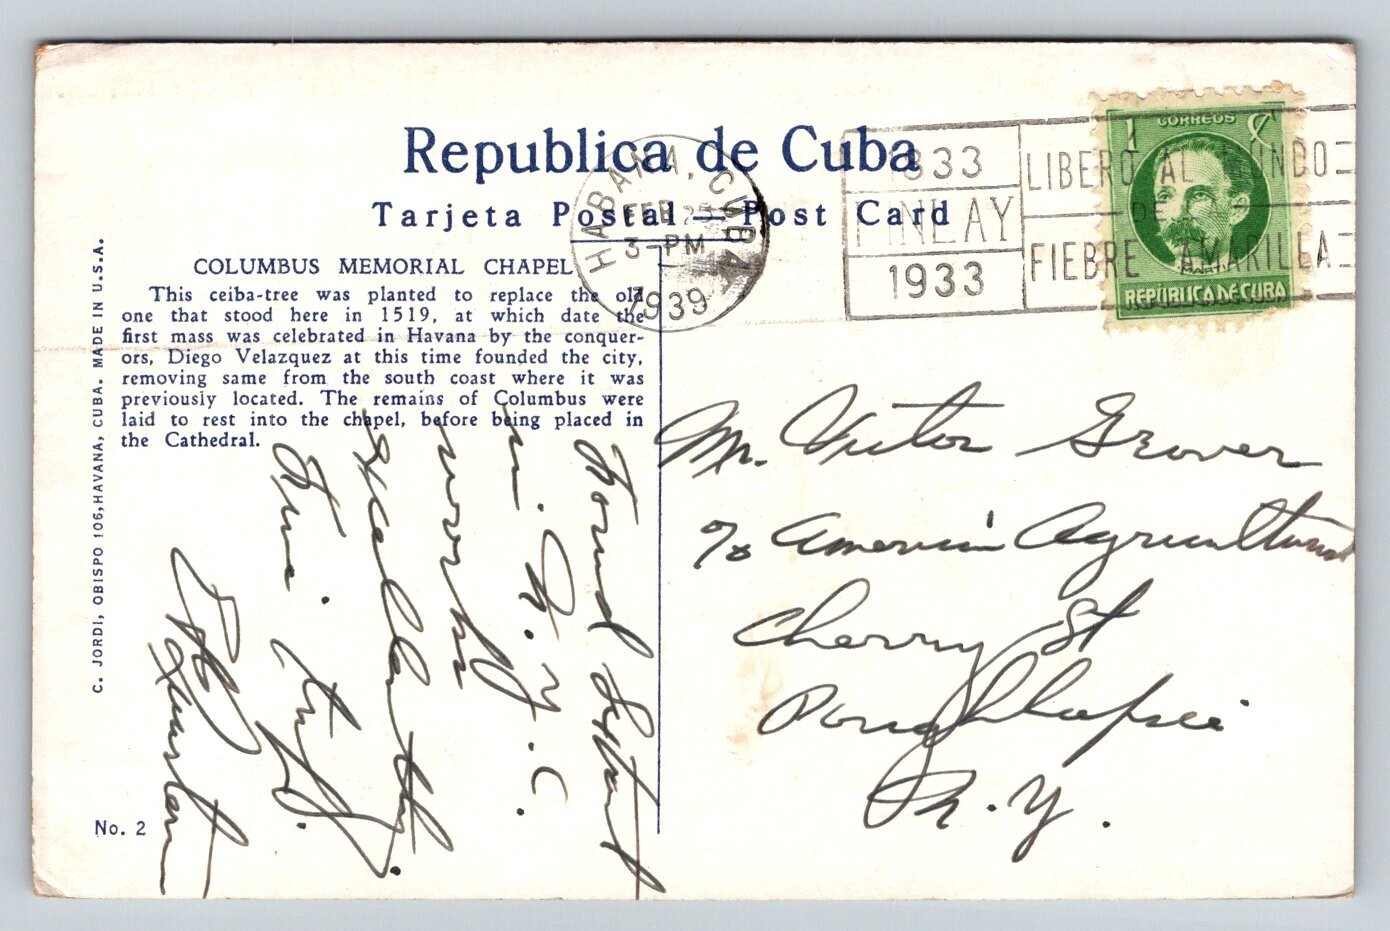 Republica de Cuba
Tarjeta Postal — Post Card
HABANA, CUBA
FEB 25
3-PM
1939
1833
FINLAY
1933
LIBERO AL MUNDO
DE LA
FIEBRE AMARILLA
1 CORREOS ¢
MARTI
REPUBLICA DE CUBA
COLUMBUS MEMORIAL CHAPEL
This ceiba-tree was planted to replace the old
one that stood here in 1519, at which date the
first mass was celebrated in Havana by the conquer-
ors, Diego Velazquez at this time founded the city,
removing same from the south coast where it was
previously located. The remains of Columbus were
laid to rest into the chapel, before being placed in
the Cathedral.
C. JORDI, OBISPO 106, HAVANA, CUBA. MADE IN U.S.A.
No. 2
Mr. Victor Grover
c/o American Agricultural
Cherry St
Poughkepsei
N.Y.
in N.Y.C.
Fine trip.